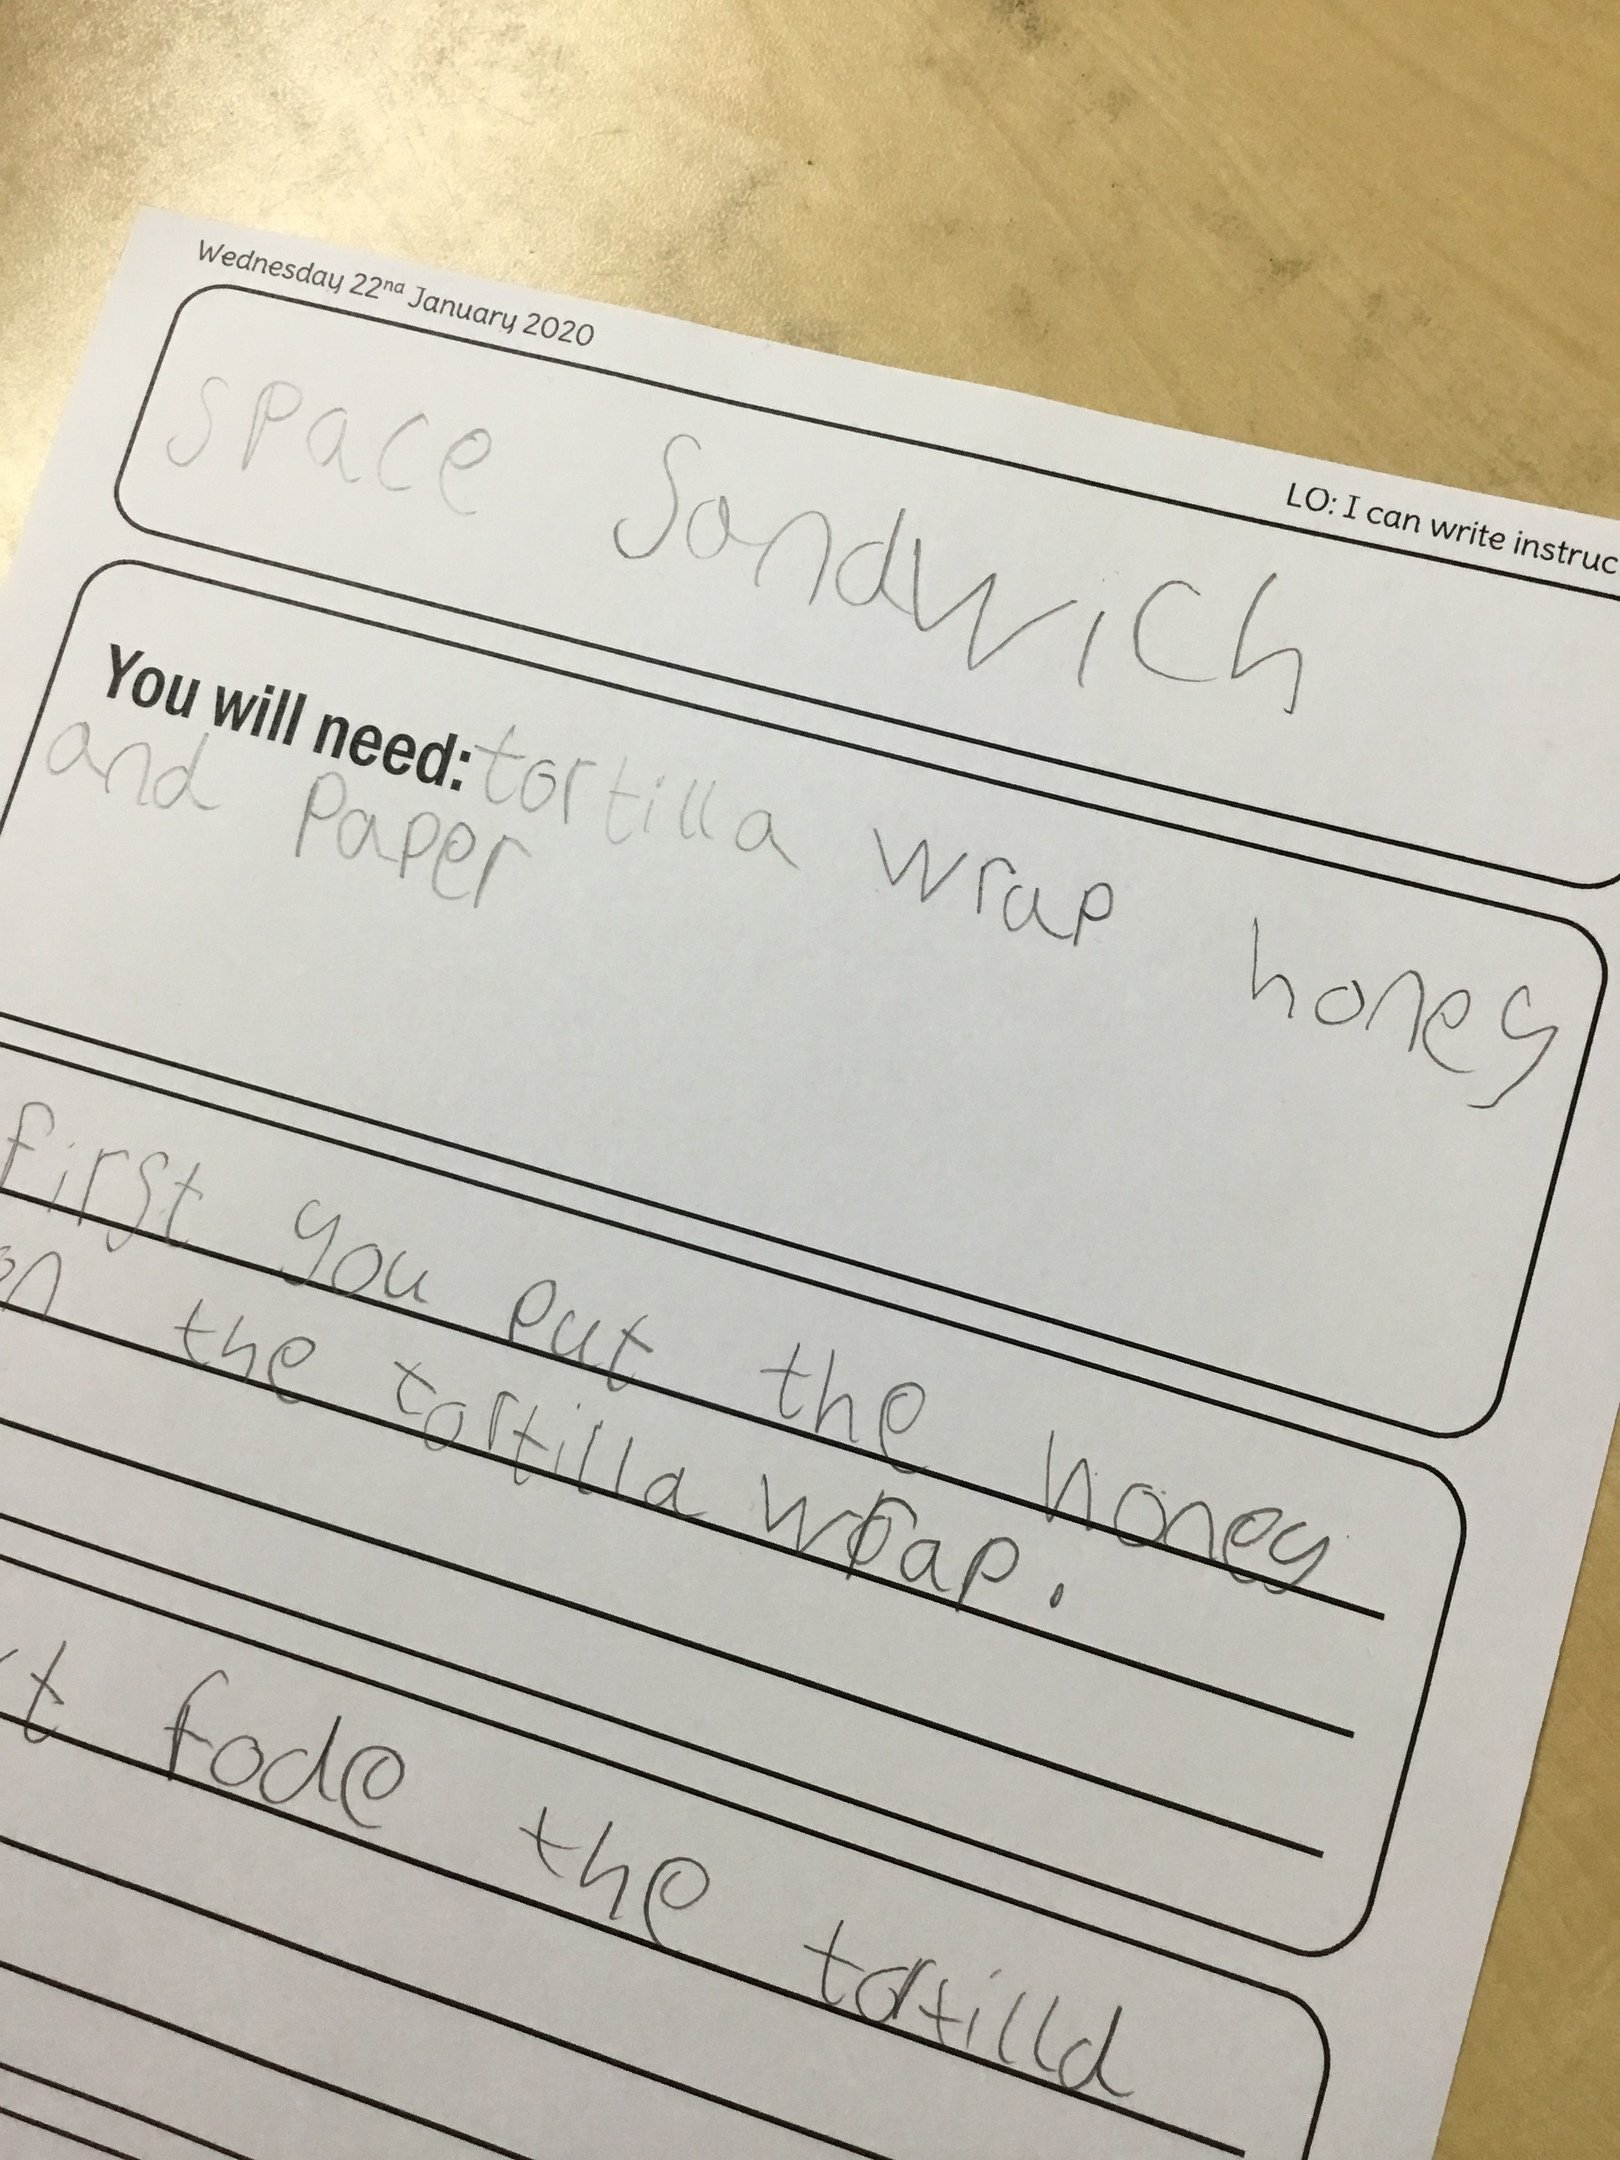 Wednesday 22nd January 2020
LO: I can write instruc
space Sandwich
You will need: tortilla wrap honey
and Paper
first you put the honey
on the tortilla wrap.
fode the tortilld